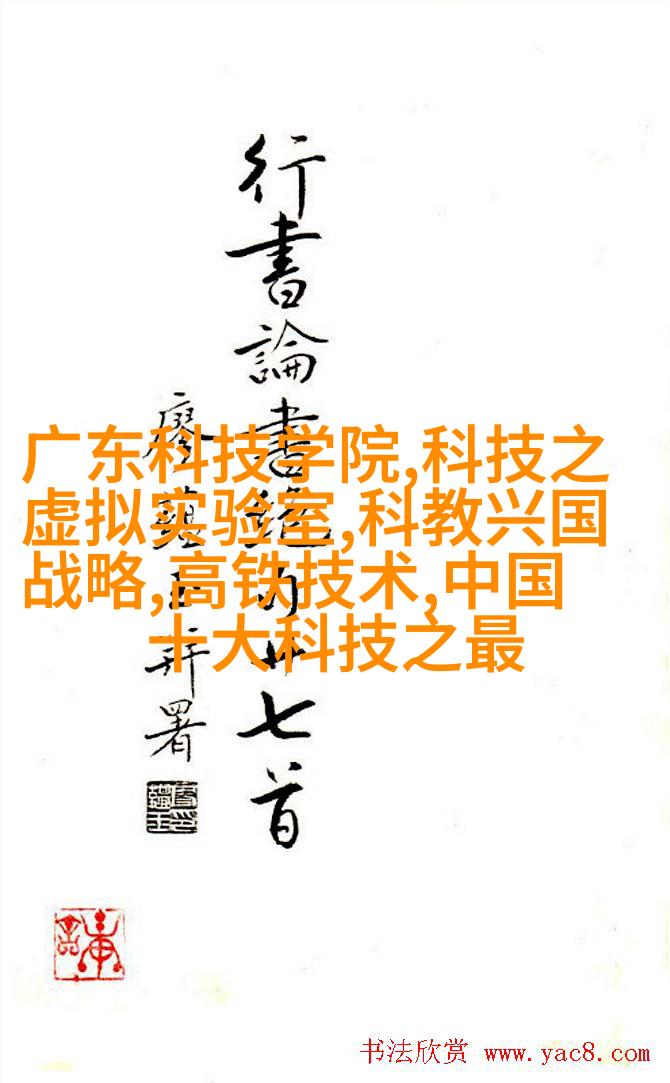 行書論書絕句卅七首
廖蘊玉并署
广东科技学院,科技之
虚拟实验室,科教兴国
战略,高铁技术,中国
十大科技之最
书法欣赏 www.yac8.com